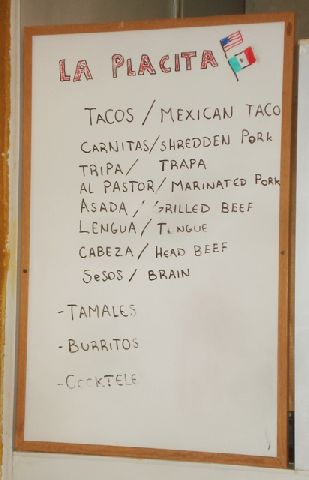 LA PLACITA
TACOS / MEXICAN TACO
CARNITAS/SHREDDEN PORK
TRIPA/ TRAPA
AL PASTOR/ MARINATED PORK
ASADA / GRILLED BEEF
LENGUA/ TONGUE
CABEZA/ HEAD BEEF
SESOS/ BRAIN
-TAMALES
-BURRITOS
-COCKTELE